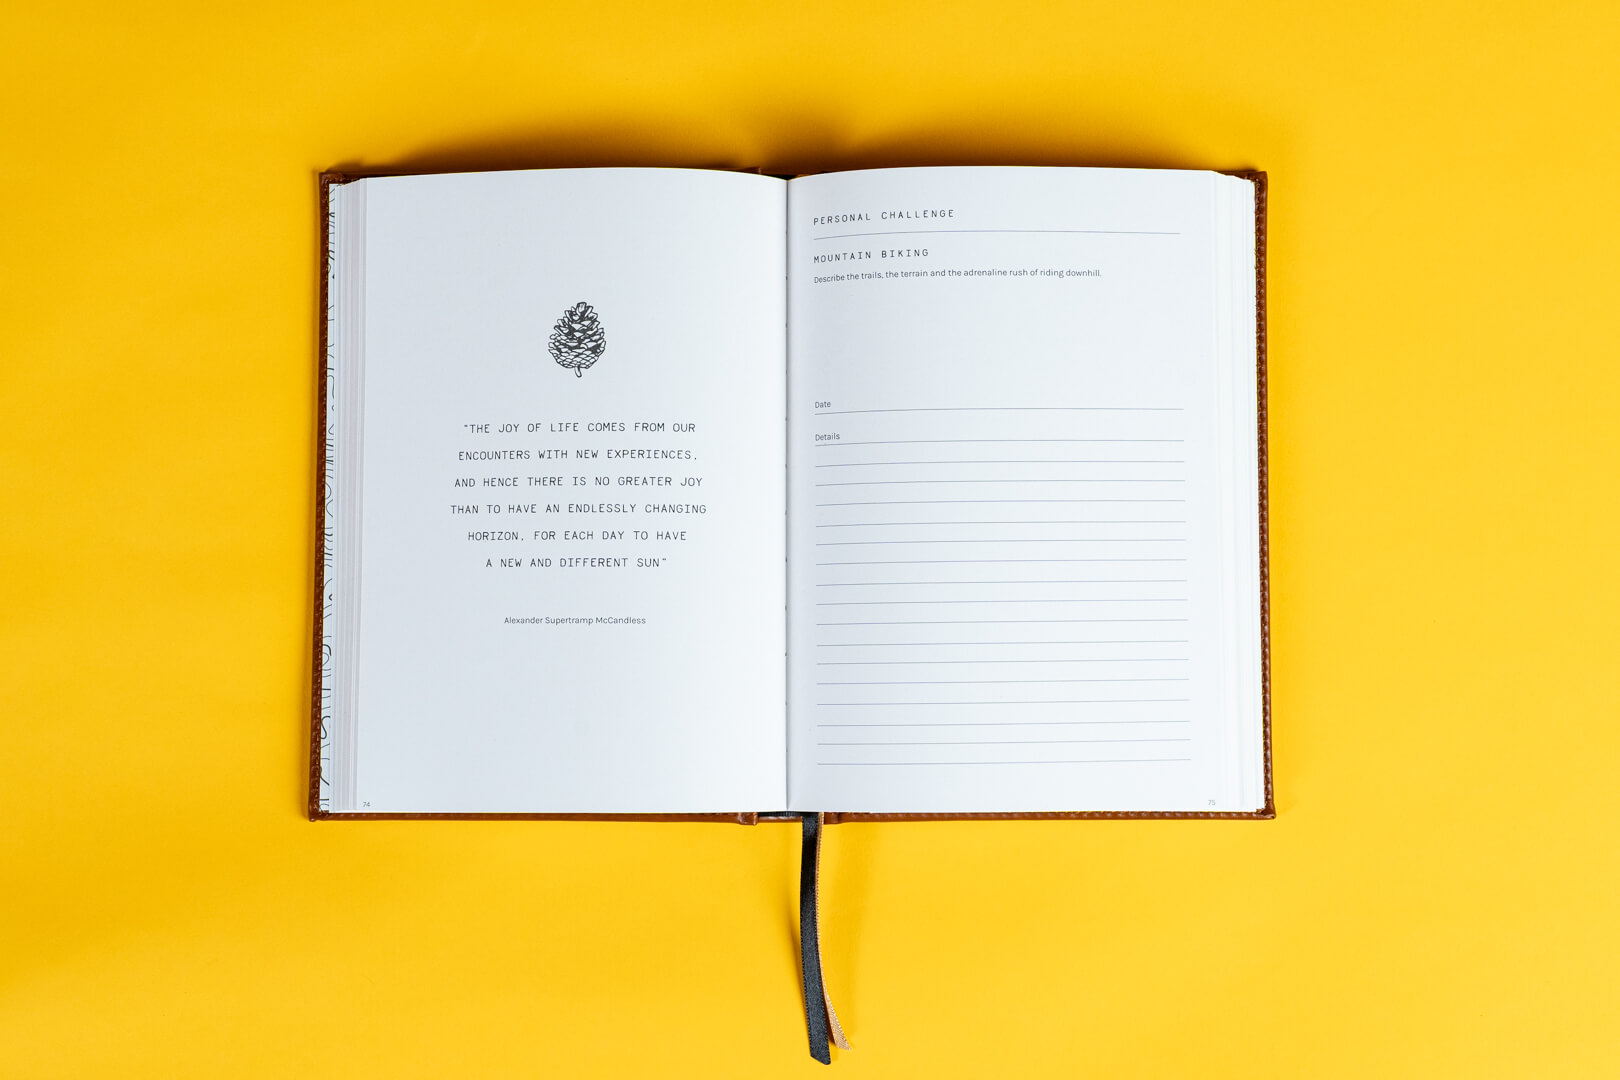 "THE JOY OF LIFE COMES FROM OUR
ENCOUNTERS WITH NEW EXPERIENCES,
AND HENCE THERE IS NO GREATER JOY
THAN TO HAVE AN ENDLESSLY CHANGING
HORIZON, FOR EACH DAY TO HAVE
A NEW AND DIFFERENT SUN"
Alexander Supertramp McCandless
74
PERSONAL CHALLENGE
MOUNTAIN BIKING
Describe the trails, the terrain and the adrenaline rush of riding downhill.
Date
Details
75